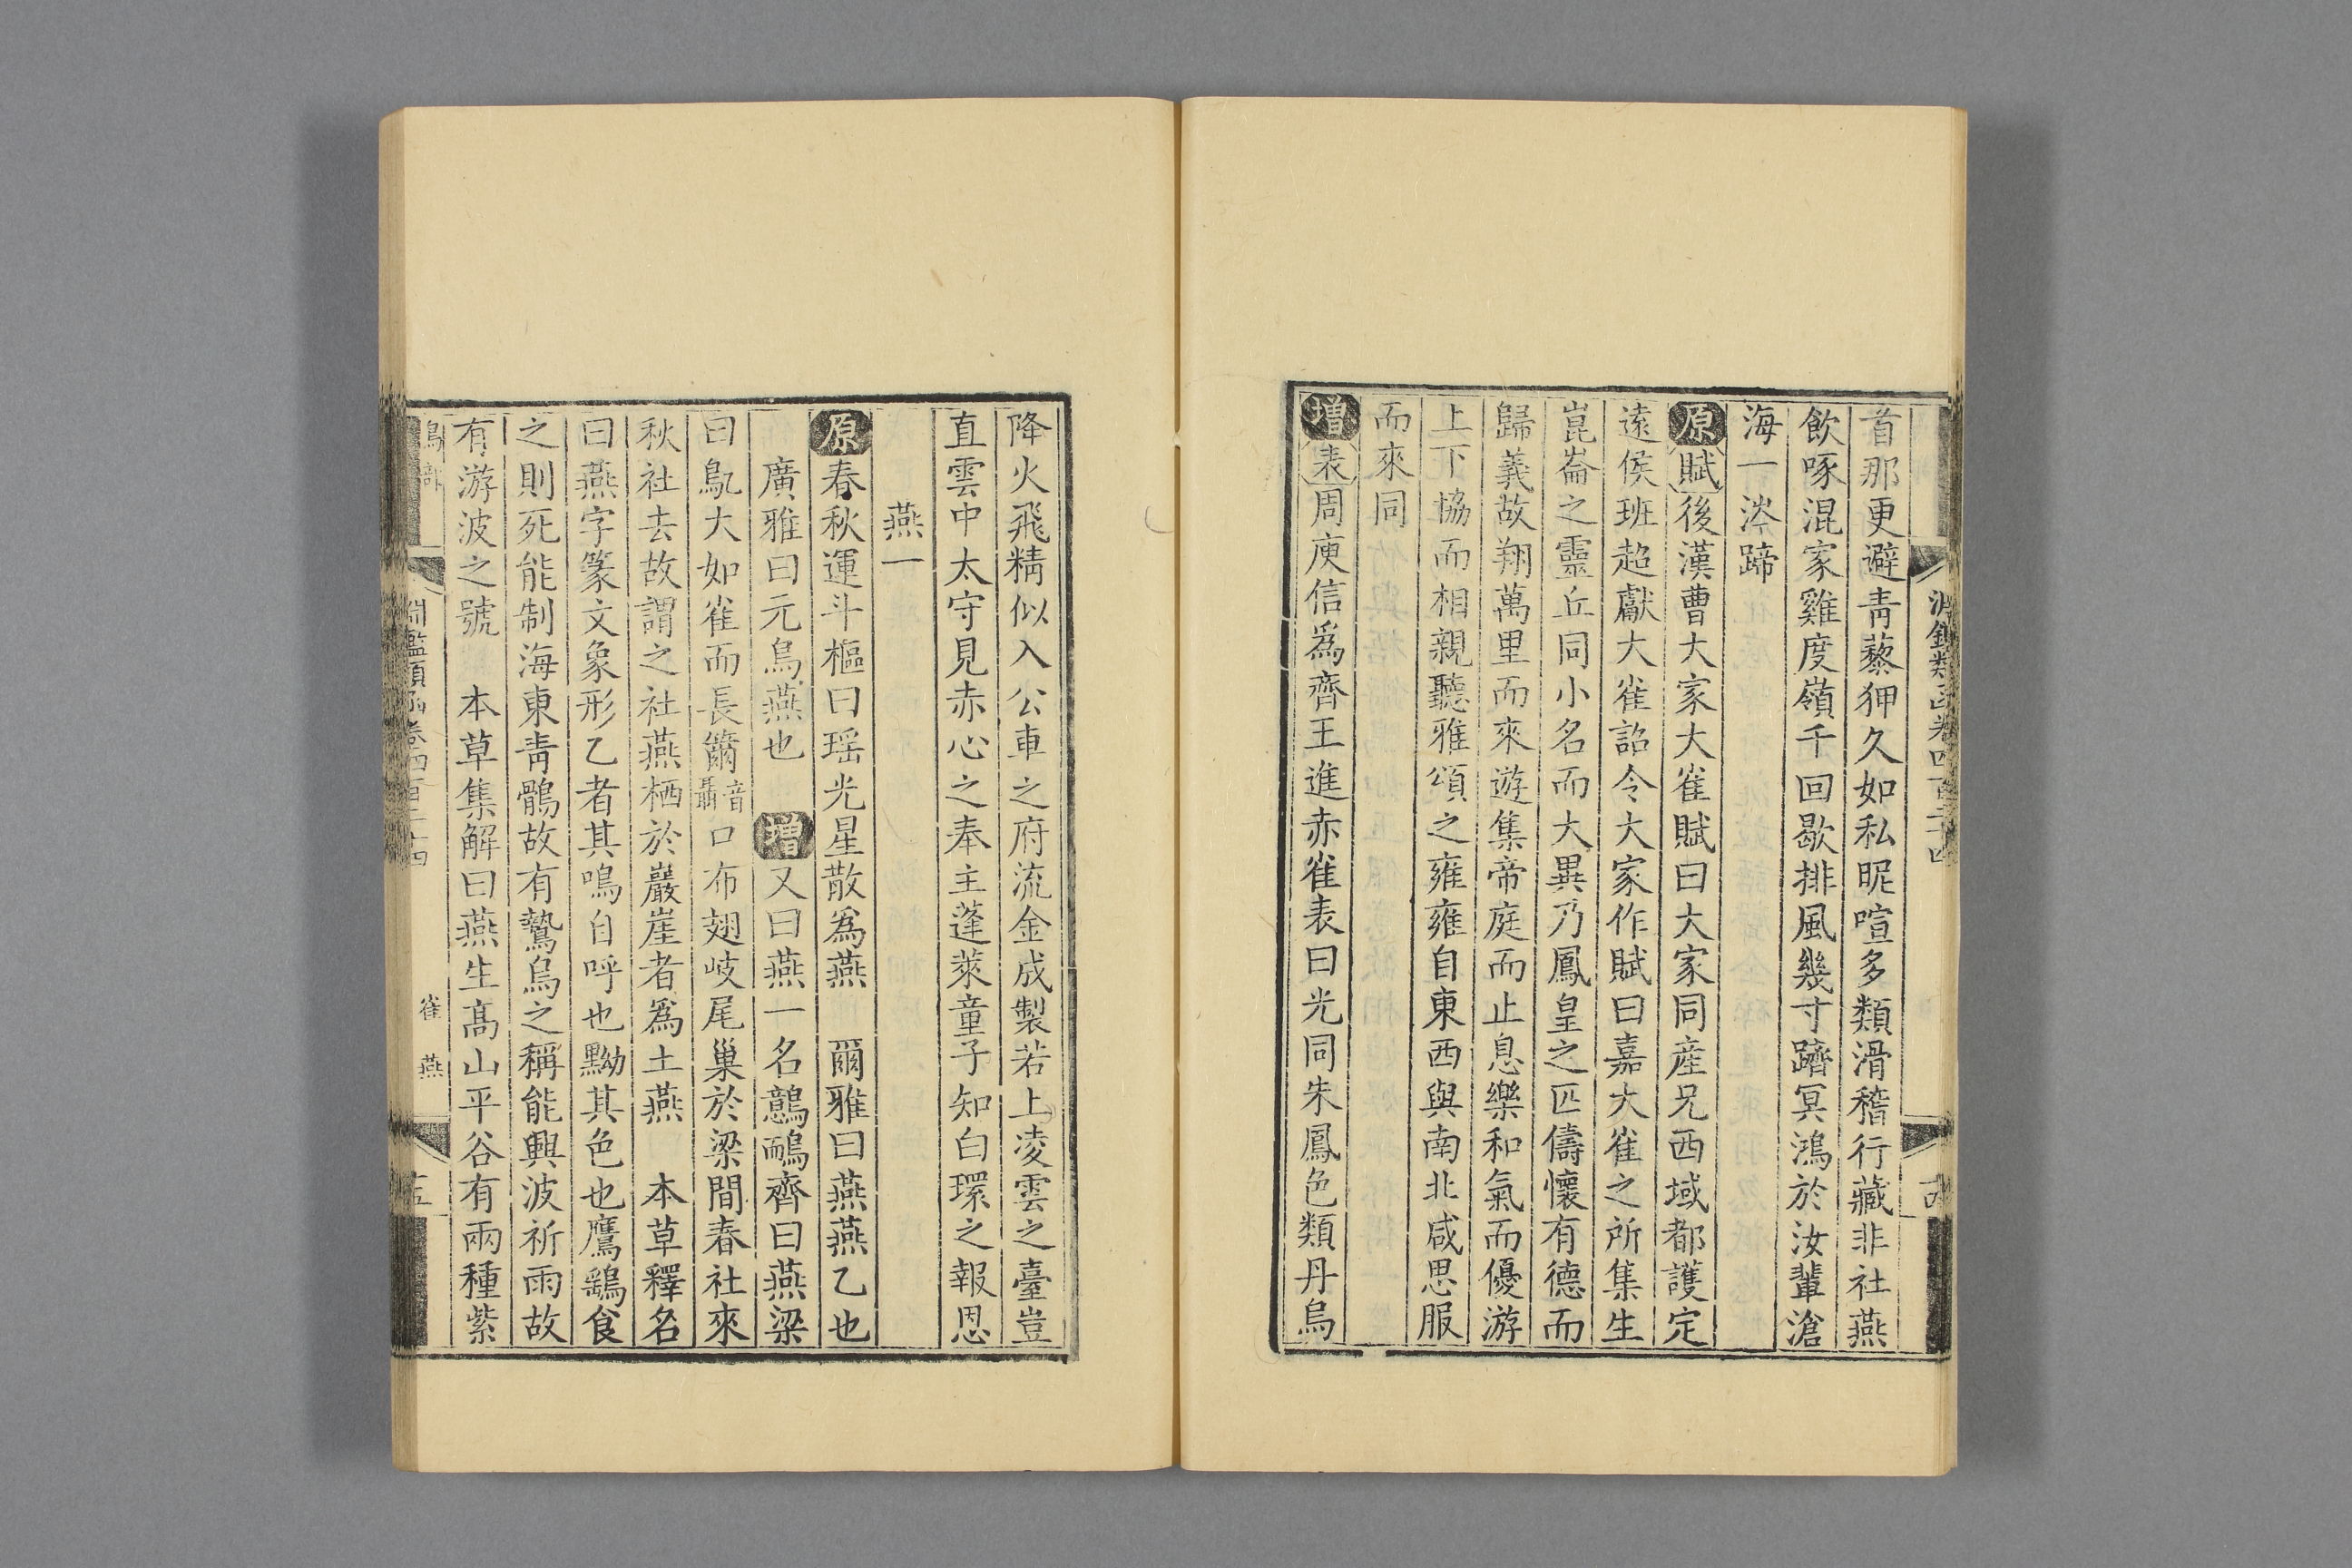 首那更避青藜狎久如私昵喧多類滑稽行藏非社燕
飲啄混家雞度嶺千回歇排風幾寸躋冥鴻於汝輩滄
海一涔蹄
原賦後漢曹大家大雀賦曰大家同產兄西域都護定
遠侯班超獻大雀詔令大家作賦曰嘉大雀之所集生
崑崙之靈丘同小名而大異乃鳳皇之匹儔懷有德而
歸義故翔萬里而來遊集帝庭而止息樂和氣而優游
上下協而相親聽雅頌之雍雍自東西與南北咸思服
而來同
增表周庾信爲齊王進赤雀表曰光同朱鳳色類丹烏
降火飛精似入公車之府流金成製若上凌雲之臺豈
直雲中太守見赤心之奉主蓬萊童子知白環之報恩
燕一
原春秋運斗樞曰瑤光星散爲燕 爾雅曰燕燕乙也
廣雅曰元鳥燕也 增又曰燕一名鷾鴯齊曰燕梁
曰鳦大如雀而長籋音聶口布翅岐尾巢於梁間春社來
秋社去故謂之社燕栖於巖崖者爲土燕 本草釋名
曰燕字篆文象形乙者其鳴自呼也黝其色也鷹鷂食
之則死能制海東青鶻故有鷙鳥之稱能興波祈雨故
有游波之號 本草集解曰燕生高山平谷有兩種紫
淵鑑類函卷四百二十四
雀 燕